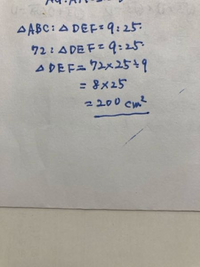 △ABC:△DEF=9:25.
72:△DEF=9:25.
△DEF=72×25÷9
=8×25
=200 cm²